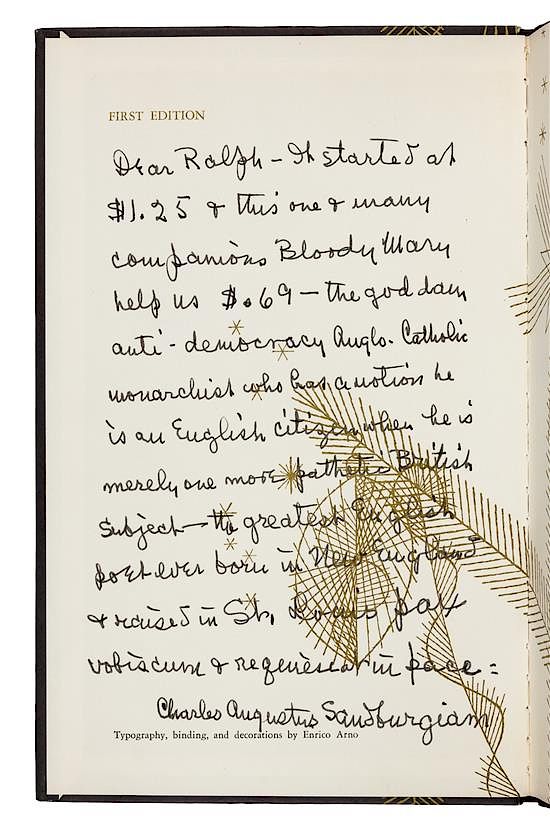 FIRST EDITION
Dear Ralph – It started at
$1.25 & this one & many
companions Bloody Mary
help us $.69 – the god dam
anti-democracy Anglo-Catholic
monarchist who has a notion he
is an English citizen when he is
merely one more pathetic British
subject – the greatest English
poet ever born in New England
& raised in St. Louis pax
vobiscum & requiescat in pace =
Charles Augustus Sandburgiam
Typography, binding, and decorations by Enrico Arno